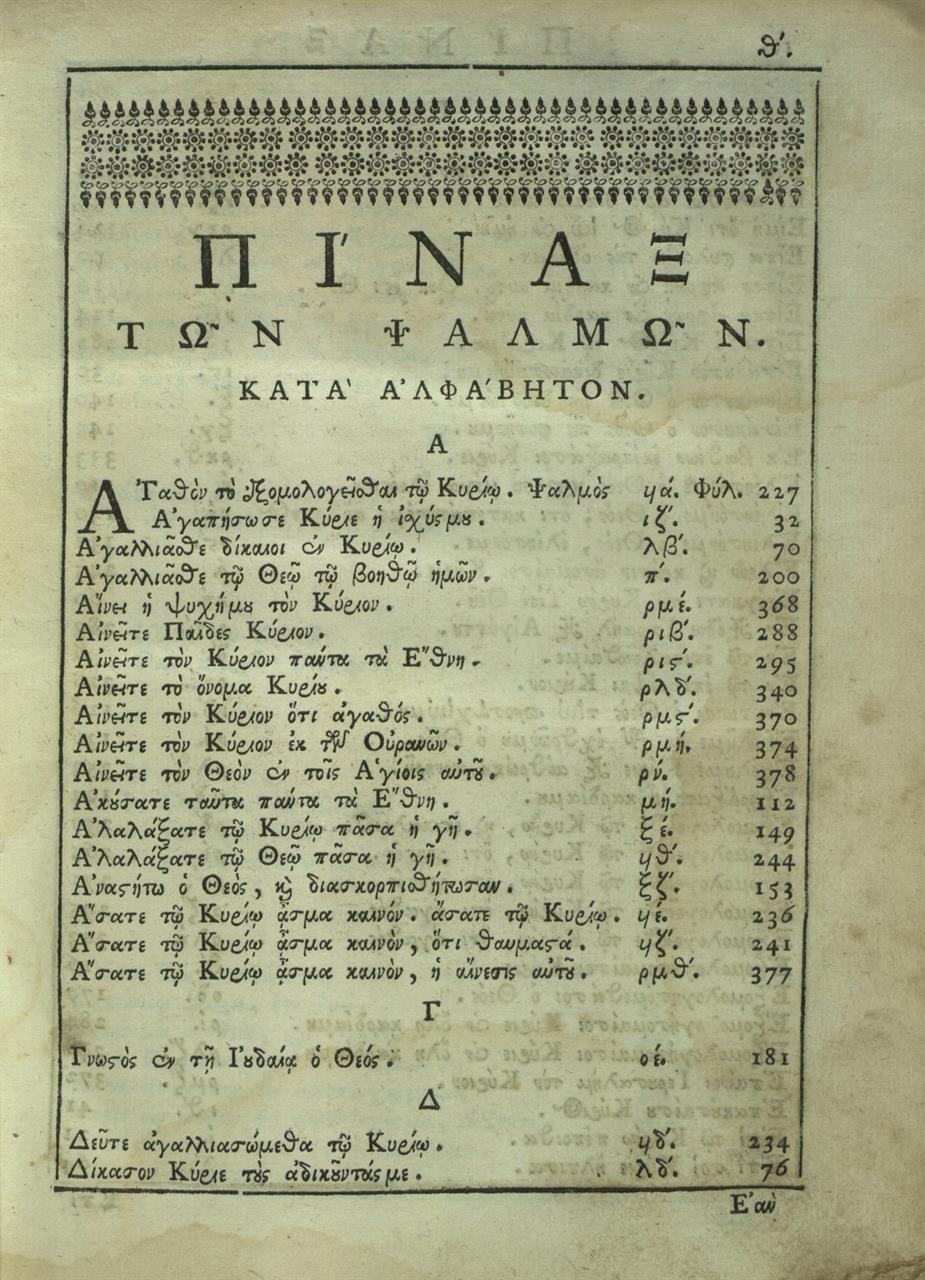 θ'.
ΠΙ'ΝΑΞ
ΤΩ͂Ν ΨΑΛΜΩ͂Ν.
ΚΑΤΑ' Α'ΛΦΑ'ΒΗΤΟΝ.
Α
Α'Γαθὸν τὸ ἐξομολογεῖσθαι τῷ Κυρίῳ. Ψαλμὸς ϟά. Φύλ. 227
Α'γαπήσωσε Κύριε ἡ ἰχύςμου. ιζ'. 32
Α'γαλλιᾶσθε δίκαιοι ἐν Κυρίῳ. λβ'. 70
Α'γαλλιᾶσθε τῷ Θεῷ τῷ βοηθῷ ἡμῶν. π'. 200
Αἴνει ἡ ψυχήμου τὸν Κύριον. ρμέ. 368
Αἰνεῖτε Παῖδες Κύριον. ριβ'. 288
Αἰνεῖτε τὸν Κύριον πάντα τὰ Ἔθνη. ριϛ'. 295
Αἰνεῖτε τὸ ὄνομα Κυρίου. ρλδ'. 340
Αἰνεῖτε τὸν Κύριον ὅτι ἀγαθός. ρμϛ'. 370
Αἰνεῖτε τὸν Κύριον ἐκ τῶν Οὐρανῶν. ρμή. 374
Αἰνεῖτε τὸν Θεὸν ἐν τοῖς Ἁγίοις αὐτοῦ. ρν'. 378
Α'κούσατε ταῦτα πάντα τὰ Ἔθνη. μή. 112
Α'λαλάξατε τῷ Κυρίῳ πᾶσα ἡ γῆ. ξέ. 149
Α'λαλάξατε τῷ Θεῷ πᾶσα ἡ γῆ. ϟθ'. 244
Α'ναϛήτω ὁ Θεὸς, καὶ διασκορπισθήτωσαν. ξζ'. 153
ᾌσατε τῷ Κυρίῳ ᾆσμα καινόν. ᾄσατε τῷ Κυρίῳ. ϟέ. 236
ᾌσατε τῷ Κυρίῳ ᾆσμα καινὸν, ὅτι θαυμαϛά. ϟζ'. 241
ᾌσατε τῷ Κυρίῳ ᾆσμα καινὸν, ἡ αἴνεσις αὐτοῦ. ρμθ'. 377
Γ
Γνωϛὸς ἐν τῇ Ἰουδαίᾳ ὁ Θεός. οέ. 181
Δ
Δεῦτε ἀγαλλιασώμεθα τῷ Κυρίῳ. ϟδ'. 234
Δίκασον Κύριε τοὺς ἀδικοῦντάςμε. λδ'. 76
Ε'ὰν